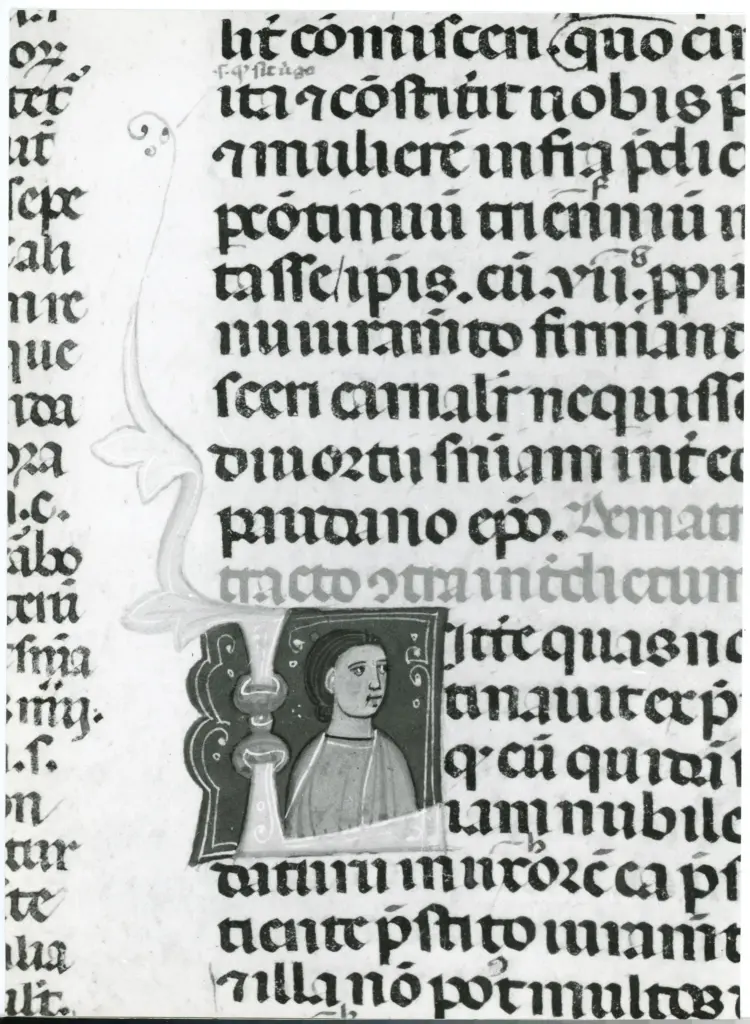 oꝝ
tet᷒
ut̄
sepe
ali
nire
que
ꝛa
.c.
ābo
teꝛii
sn̄ia
iiij.
.s.
on
tur
te
alia
alit̄.
lit̄ cōmisceri. quo ci
ita ⁊ cōstitit nobis p̄
⁊ muliere infra p̄dic
ꝑ cōtinuū trienniū
tasse ipīs. cū .vii.ˢ ꝓpi
nu iuramēto firmant
sceri carnalit̄ nequisse
diuortii sn̄iam int̄
paudano ep̄o. De mat
tracto ↄtra int̄dictum
Litt̄e quas n
tinauit ex p̄
q̛ cū quidā
iam nubile
daturū in uxorē ca p̄
ciente p̄stito iuram̄t
⁊ illa nō pot̄ multos